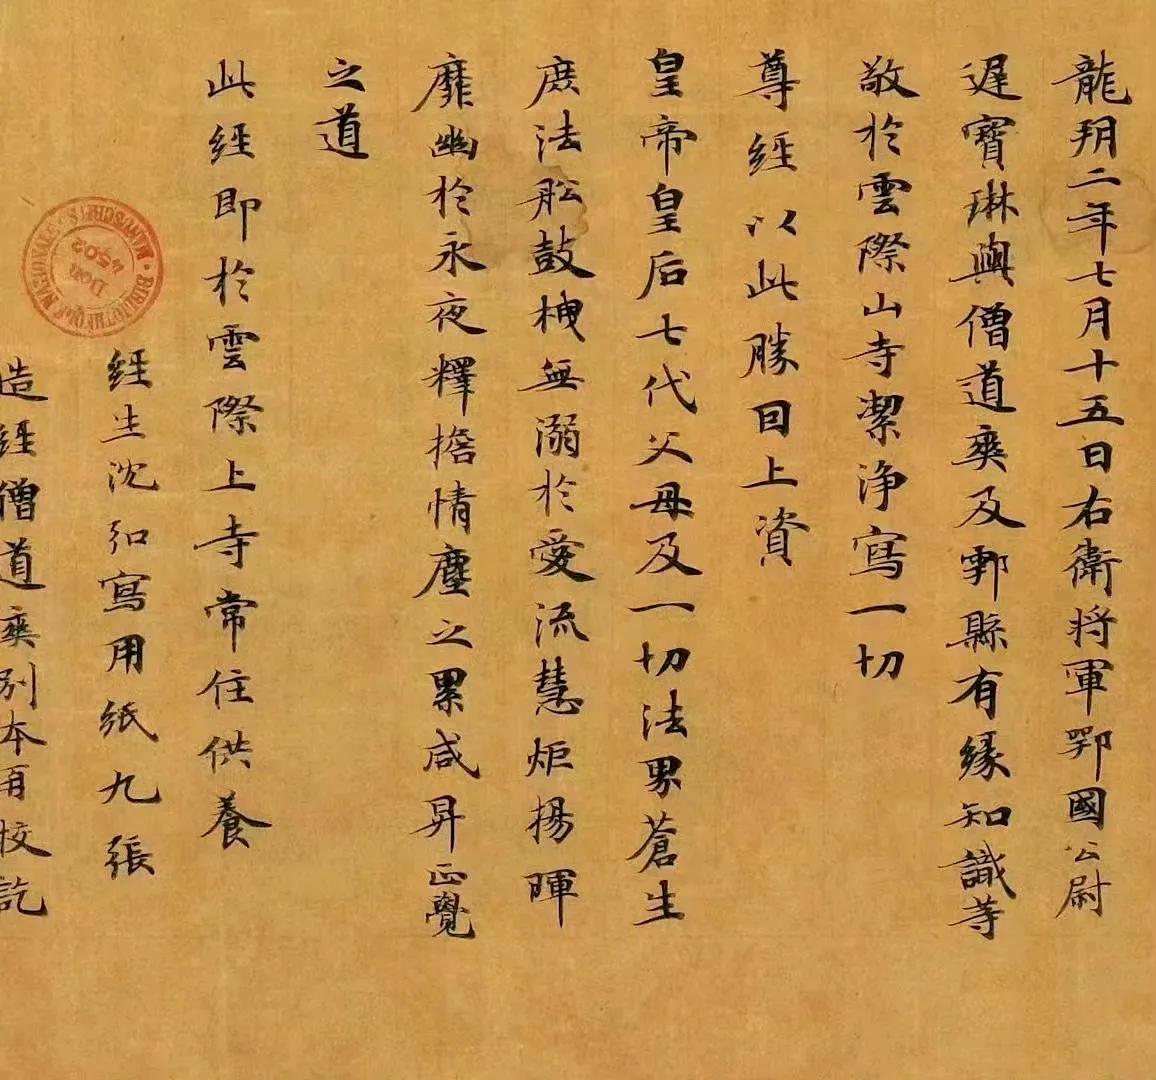 龍朔二年七月十五日右衛將軍鄂國公尉
遲寶琳與僧道爽及鄠縣有縁知識等
敬於雲際山寺潔淨寫一切
尊經以此勝因上資
皇帝皇后七代父母及一切法界蒼生
庶法舩鼓枻無溺於愛流慧炬揚暉
靡幽於永夜釋擔情塵之累咸昇正覺
之道
此經即於雲際上寺常住供養
經生沈弘寫用紙九張
造經僧道爽別本再校訖
BIBLIOTHEQUE NATIONALE · MANUSCRITS ·
Don
4502